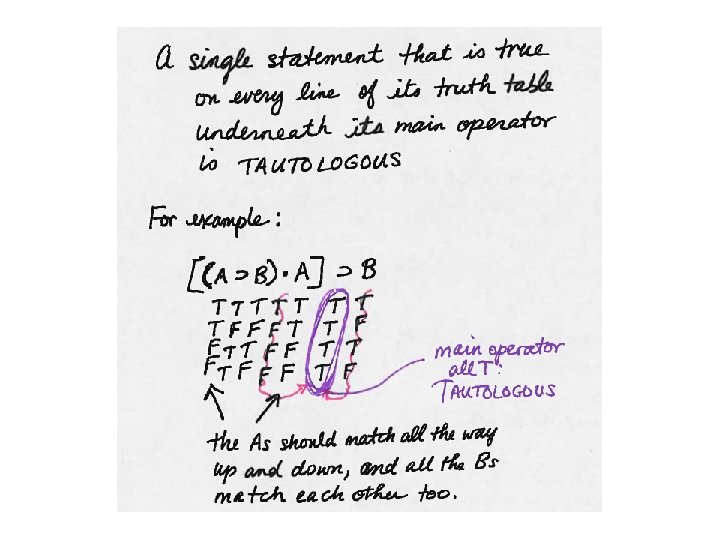 A single statement that is true
on every line of its truth table
underneath its main operator
is TAUTOLOGOUS
For example:
[(A ⊃ B) • A] ⊃ B
T T T T T T T
T F F F T T F
F T T F F T T
F T F F F T F
main operator
all T:
TAUTOLOGOUS
the As should match all the way
up and down, and all the Bs
match each other too.